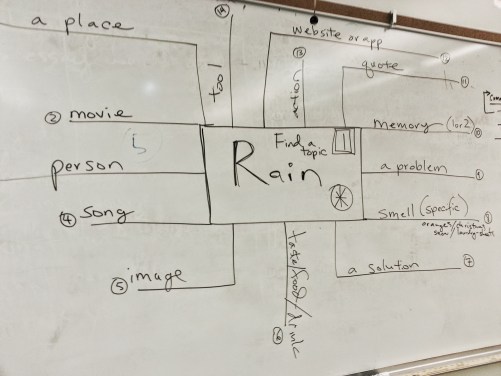 a place
14
tool
13
action
website or app
12
quote
11
② movie
memory (1 or 2)
10
person
a problem
9
④ song
smell (specific)
8
⑤ image
⑥
taste/food/drink
a solution
⑦
Find a topic
1
Rain